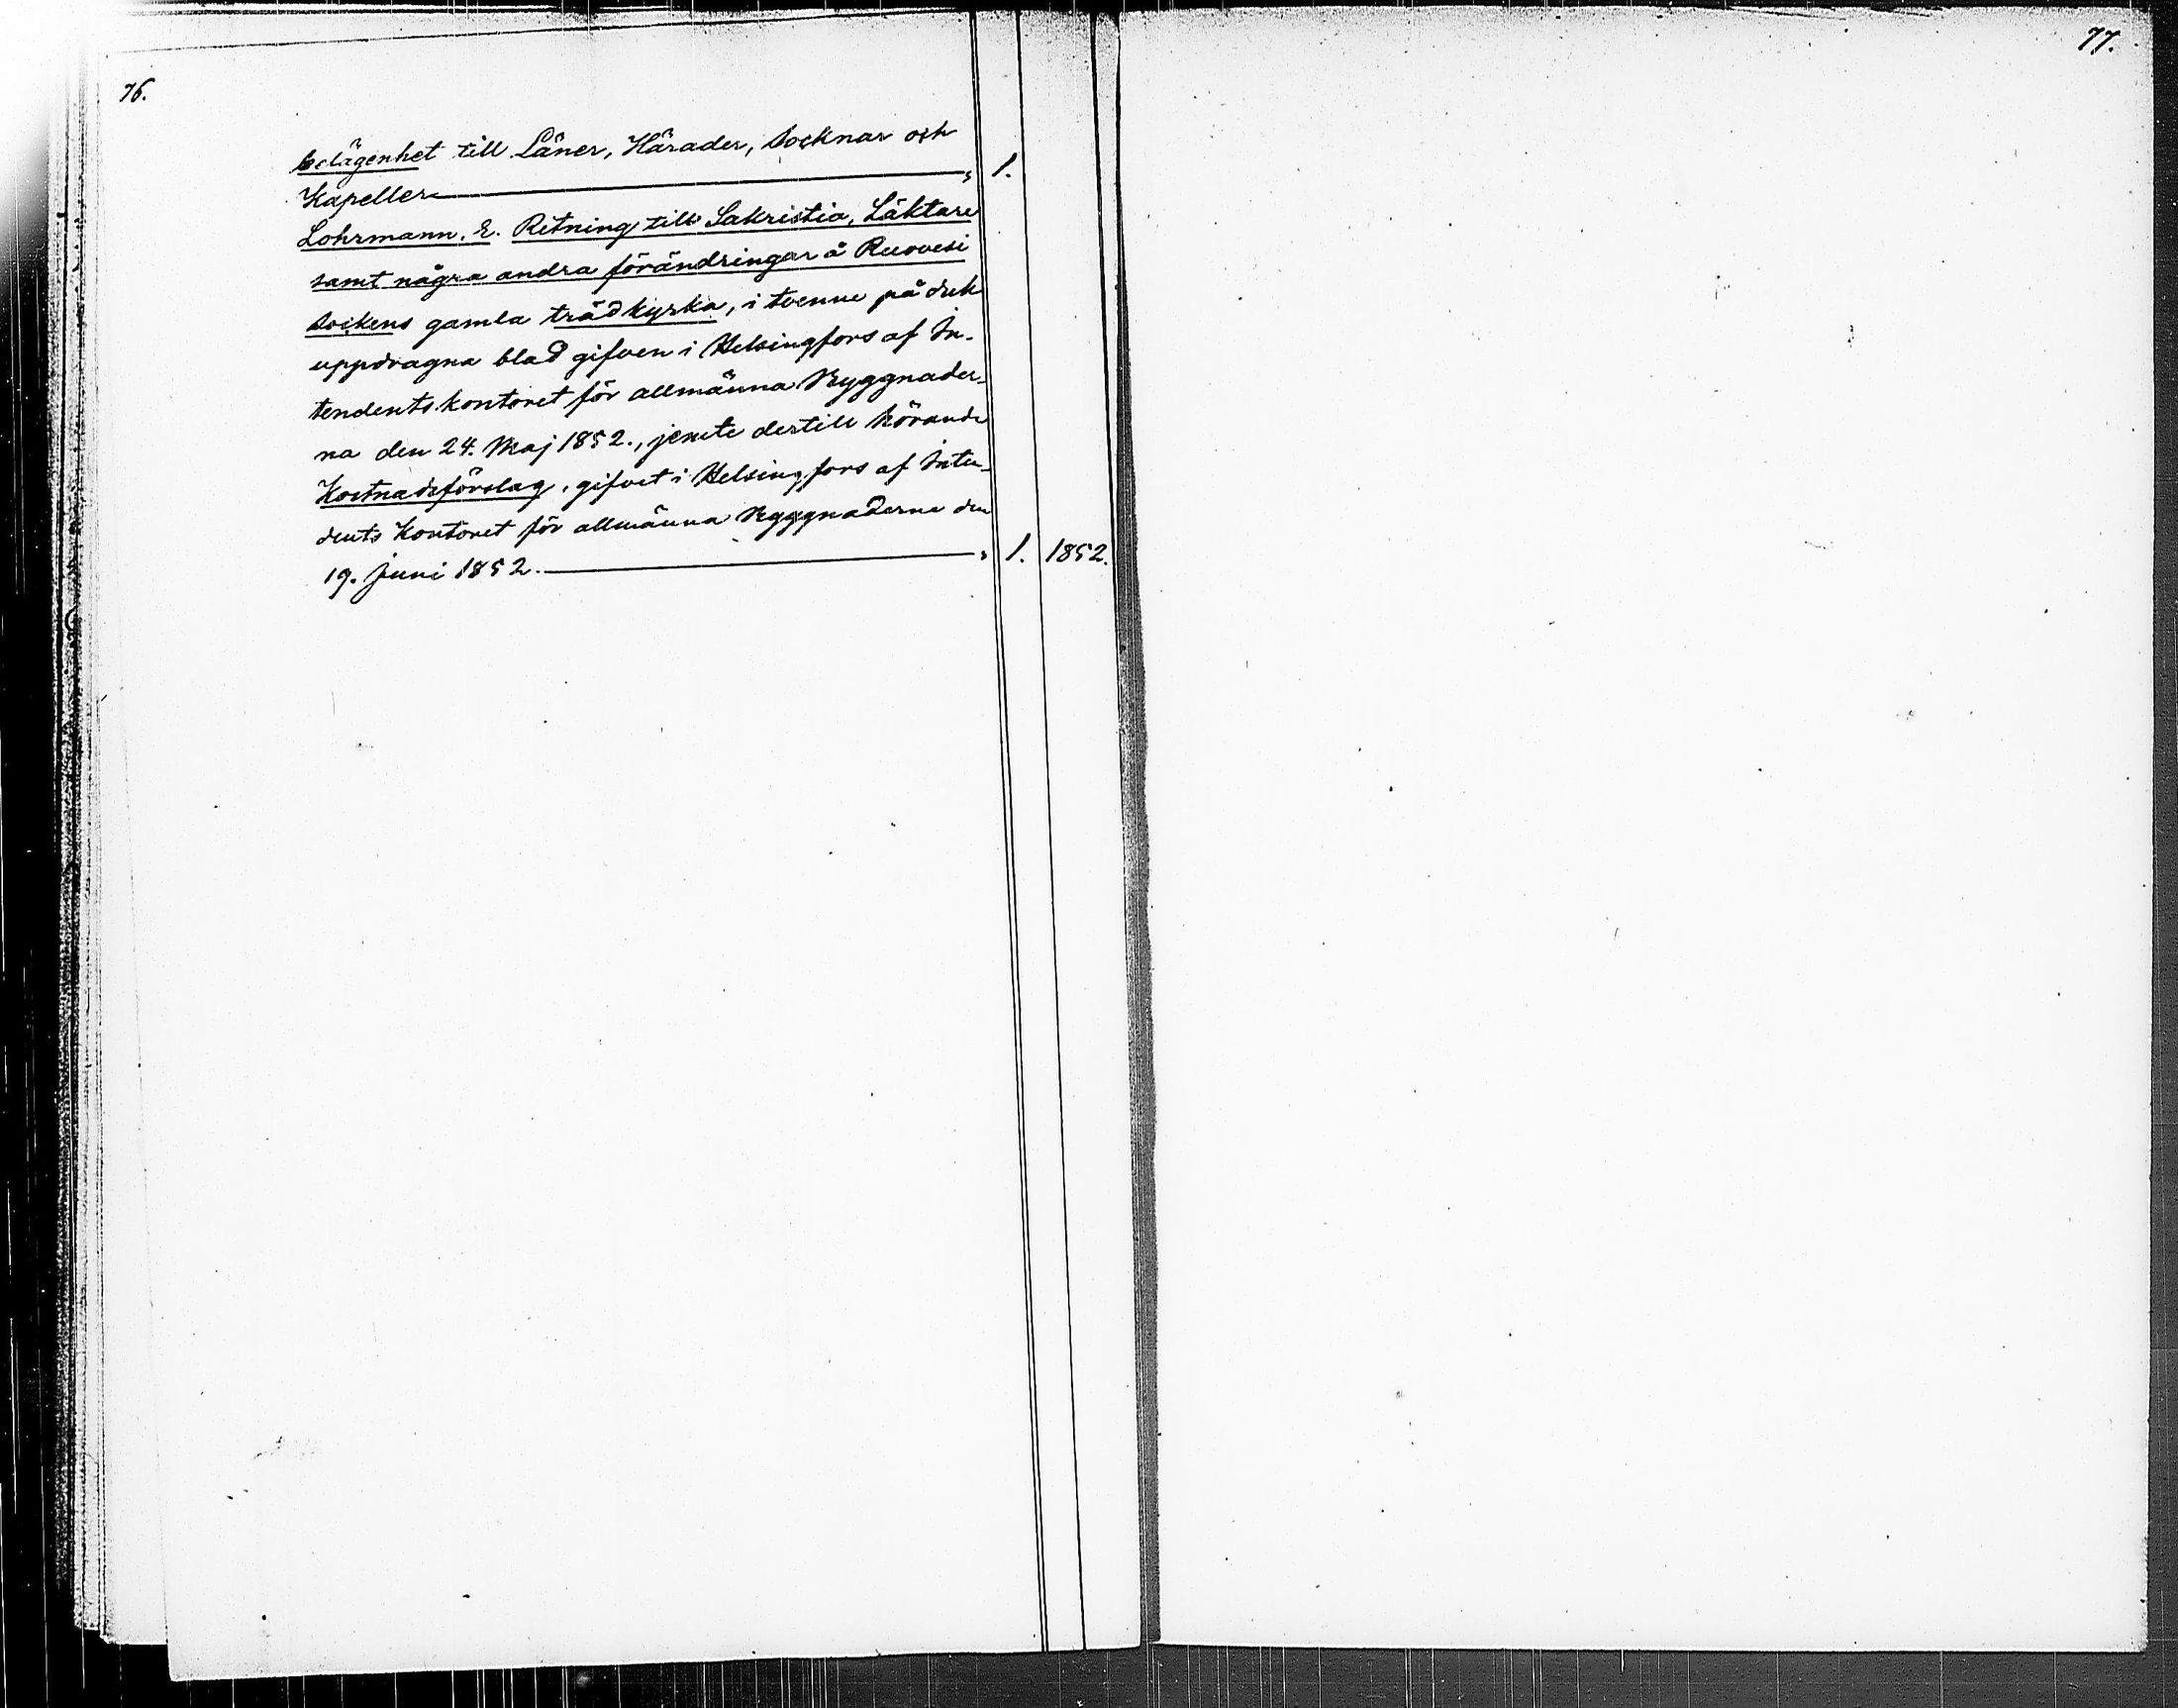 76.
belägenhet till Läner, Härader, Socknar och
Kapeller — „ 1.
Lohrmann, E. Ritning till Sakristia, Läktare
samt några andra förändringar å Ruovesi
Sockens gamla trädkyrka, i tvenne på duk
uppdragna blad gifven i Helsingfors af In-
tendents kontoret för allmänna Byggnader-
na den 24. Maj 1852., jemte dertill hörande
Kostnadsförslag, gifvet i Helsingfors af Inten-
dents Kontoret för allmänna Byggnaderne den
19. Juni 1852. — „ 1. 1852.
77.